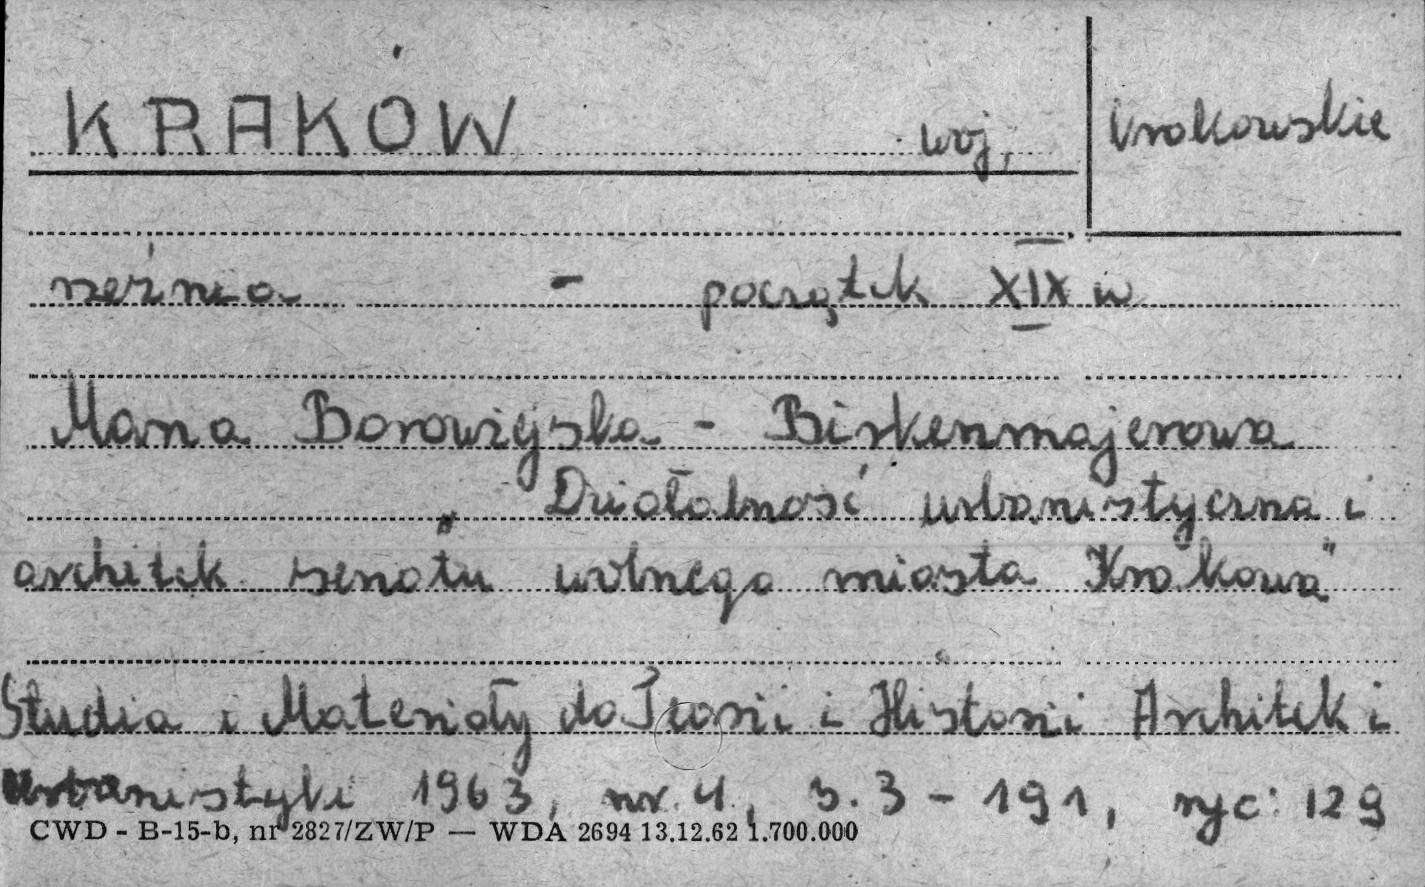 KRAKÓW woj, krakowskie
rzeźnia - początek XIX w
Maria Borowiejska - Birkenmajerowa
„Działalność urbanistyczna i
architek senatu wolnego miasta Krakowa"
Studia i Materiały do Teorii i Historii Architek i
Urbanistyki 1963, nr. 4, s. 3 - 191, ryc: 129
CWD - B-15-b, nr 2827/ZW/P — WDA 2694 13.12.62 1.700.000